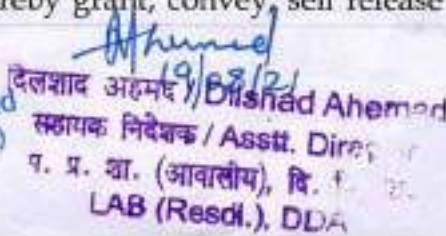 reby grant, convey, sell release
Ahemed
19/08/21
दिलशाद अहमद / Dilshad Ahemed
सहायक निदेशक / Asstt. Dire
प. प्र. शा. (आवासीय), दि.
LAB (Resdl.), DDA